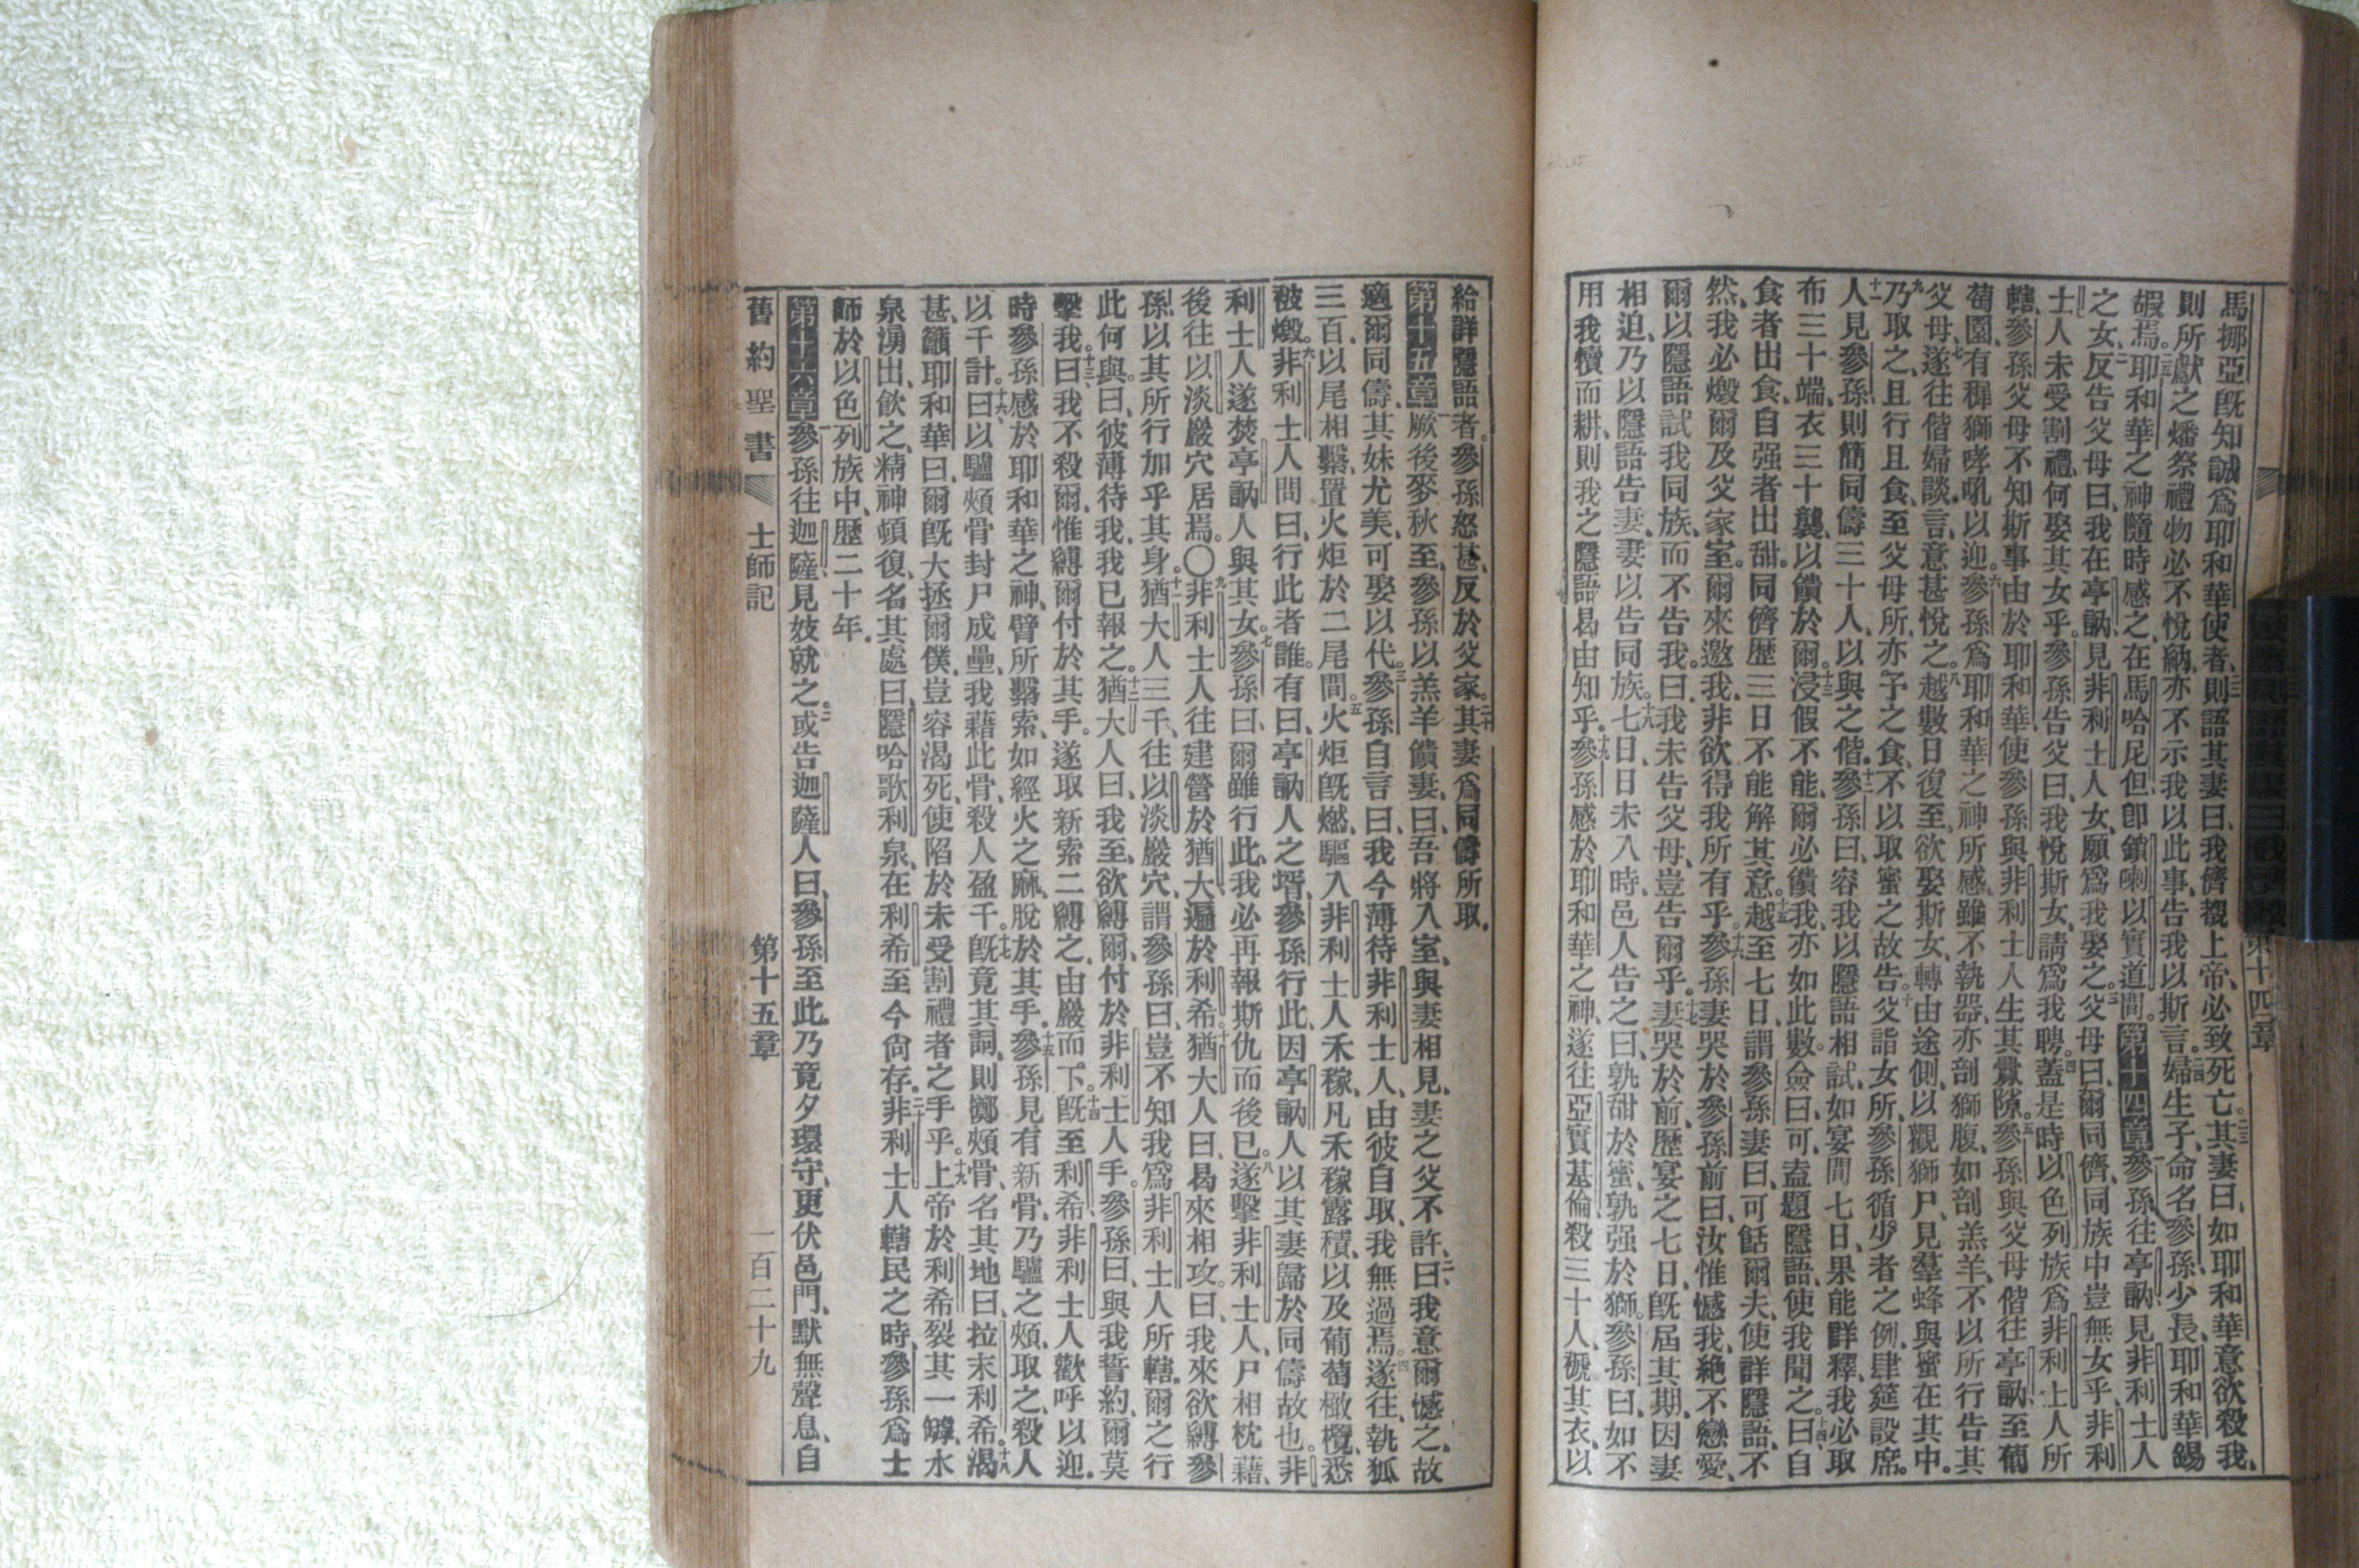 馬挪亞旣知誠爲耶和華使者、則語其妻曰、我儕覩上帝、必致死亡。二三其妻曰、如耶和華意欲殺我、
則所獻之燔祭禮物必不悅納、亦不示我以此事、告我以斯言。二四婦生子、命名參孫、少長、耶和華錫
嘏焉。二五耶和華之神隨時感之、在馬哈尼但、卽鎖喇以實道間。第十四章一參孫往亭訥、見非利士人
之女、二反告父母曰、我在亭訥、見非利士人女、願爲我娶之。三父母曰、爾同儕、同族中豈無女乎、非利
士人未受割禮、何娶其女乎。參孫告父曰、我悅斯女、請爲我聘。四蓋是時以色列族爲非利士人所
轄、參孫父母不知斯事由於耶和華、使參孫與非利士人生其釁隙。五參孫與父母偕往亭訥、至葡
萄園、有穉獅哮吼以迎。六參孫爲耶和華之神所感、雖不執器、亦剖獅腹、如剖羔羊、不以所行告其
父母、七遂往偕婦談言、意甚悅之。八越數日復至、欲娶斯女、轉由途側、以觀獅尸、見羣蜂與蜜在其中。
九乃取之、且行且食、至父母所、亦予之食、不以取蜜之故告。十父詣女所、參孫循少者之例、肆筵設席。
十一人見參孫、則簡同儔三十人、以與之偕。十二參孫曰、容我以隱語相試、如宴間七日、果能詳釋、我必取
布三十端、衣三十襲、以饋於爾。十三浸假不能、爾必饋我、亦如此數。僉曰、可、盍題隱語、使我聞之。十四曰、自
食者出食、自强者出甜。同儕歷三日不能解其意。十五越至七日、謂參孫妻曰、可餂爾夫、使詳隱語、不
然、我必燬爾及父家室。爾來邀我、非欲得我所有乎。十六參孫妻哭於參孫前曰、汝惟憾我、絕不戀愛、
爾以隱語試我同族、而不告我。曰、我未告父母、豈告爾乎。十七妻哭於前、歷宴之七日、旣屆其期、因妻
相迫、乃以隱語告妻、妻以告同族。十八七日、日未入時、邑人告之曰、孰甜於蜜、孰强於獅。參孫曰、如不
用我犢而耕、則我之隱語曷由知乎。十九參孫感於耶和華之神、遂往亞實基倫、殺三十人、褫其衣、以
第十四章
給詳隱語者。參孫怒甚、反於父家。二十其妻爲同儔所取。
第十五章一厥後麥秋至、參孫以羔羊饋妻、曰、吾將入室、與妻相見、妻之父不許、二曰、我意爾憾之、故
適爾同儔、其妹尤美、可娶以代。三參孫自言曰、我今薄待非利士人、由彼自取、我無過焉。四遂往、執狐
三百、以尾相繫、置火炬於二尾間。五火炬旣燃、驅入非利士人禾稼、凡禾稼露積、以及葡萄橄欖悉
被燬。六非利士人問曰、行此者誰。有曰、亭訥人之壻、參孫行此、因亭訥人以其妻歸於同儔故也。非
利士人遂焚亭訥人與其女。七參孫曰、爾雖行此、我必再報斯仇而後已。八遂擊非利士人、尸相枕藉、
後往以淡巖穴居焉。〇九非利士人往建營於猶大、遍於利希。十猶大人曰、曷來相攻。曰、我來欲縛參
孫、以其所行加乎其身。十一猶大人三千、往以淡巖穴、謂參孫曰、豈不知我爲非利士人所轄、爾之行
此何與。曰、彼薄待我、我已報之。十二猶大人曰、我至、欲縛爾、付於非利士人手。參孫曰、與我誓約、爾莫
擊我。十三曰、我不殺爾、惟縛爾付於其手。遂取新索二縛之、由巖而下。十四旣至利希、非利士人歡呼以迎。
時參孫感於耶和華之神、臂所繫索、如經火之麻、脫於其手。十五參孫見有新骨、乃驢之頰、取之、殺人
以千計。十六曰、以驢頰骨封尸成壘、我藉此骨、殺人盈千。十七旣竟其詞、則擲頰骨、名其地曰、拉末利希。十八渴
甚、籲耶和華曰、爾旣大拯爾僕、豈容渴死、使陷於未受割禮者之手乎。十九上帝於利希裂其一罅、水
泉湧出、飮之、精神頓復、名其處曰、隱哈歌利泉、在利希、至今尙存。二十非利士人轄民之時、參孫爲士
師於以色列族中、歷二十年。
第十六章一參孫往迦薩、見妓就之。二或告迦薩人曰、參孫至此、乃竟夕環守、更伏邑門、默無聲息、自
舊約聖書 士師記 第十五章 一百二十九